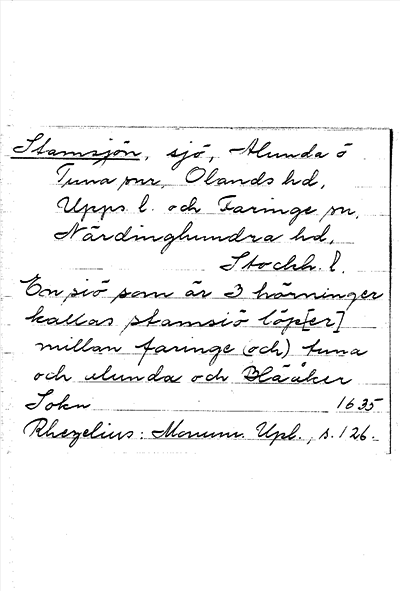 Stamsjön, sjö, Alunda o
Tuna snr, Olands hd,
Upps l. och Faringe sn,
Närdinghundra hd,
Stockh. l.
En siö som är 3 härninger
kallas stamsiö löp[er]
millan faringe (och) tuna
och alunda och Blååker
Sokn 1635
Rhezelius: Monum. Upl., s. 126.